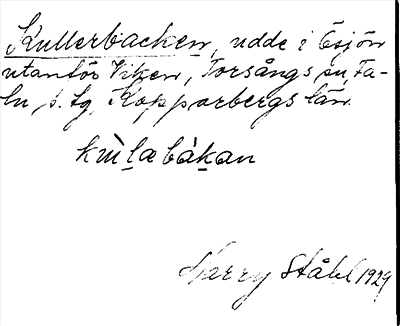 Kullerbacken, udde i Ösjön
utanför Viken, Torsångs sn, Fa-
lu s. tg, Kopparbergs län.
kùlabákan
Harry Ståhl 1929